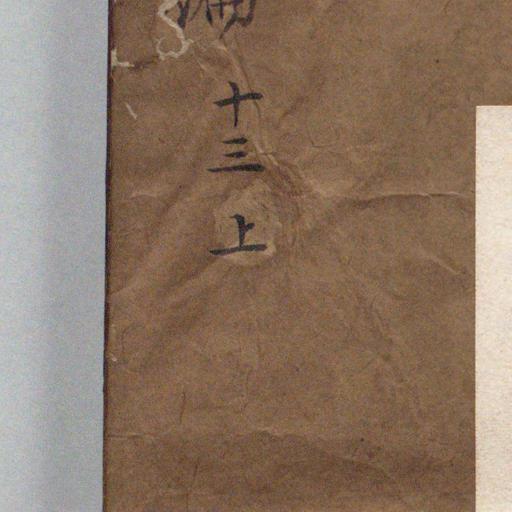 十三上